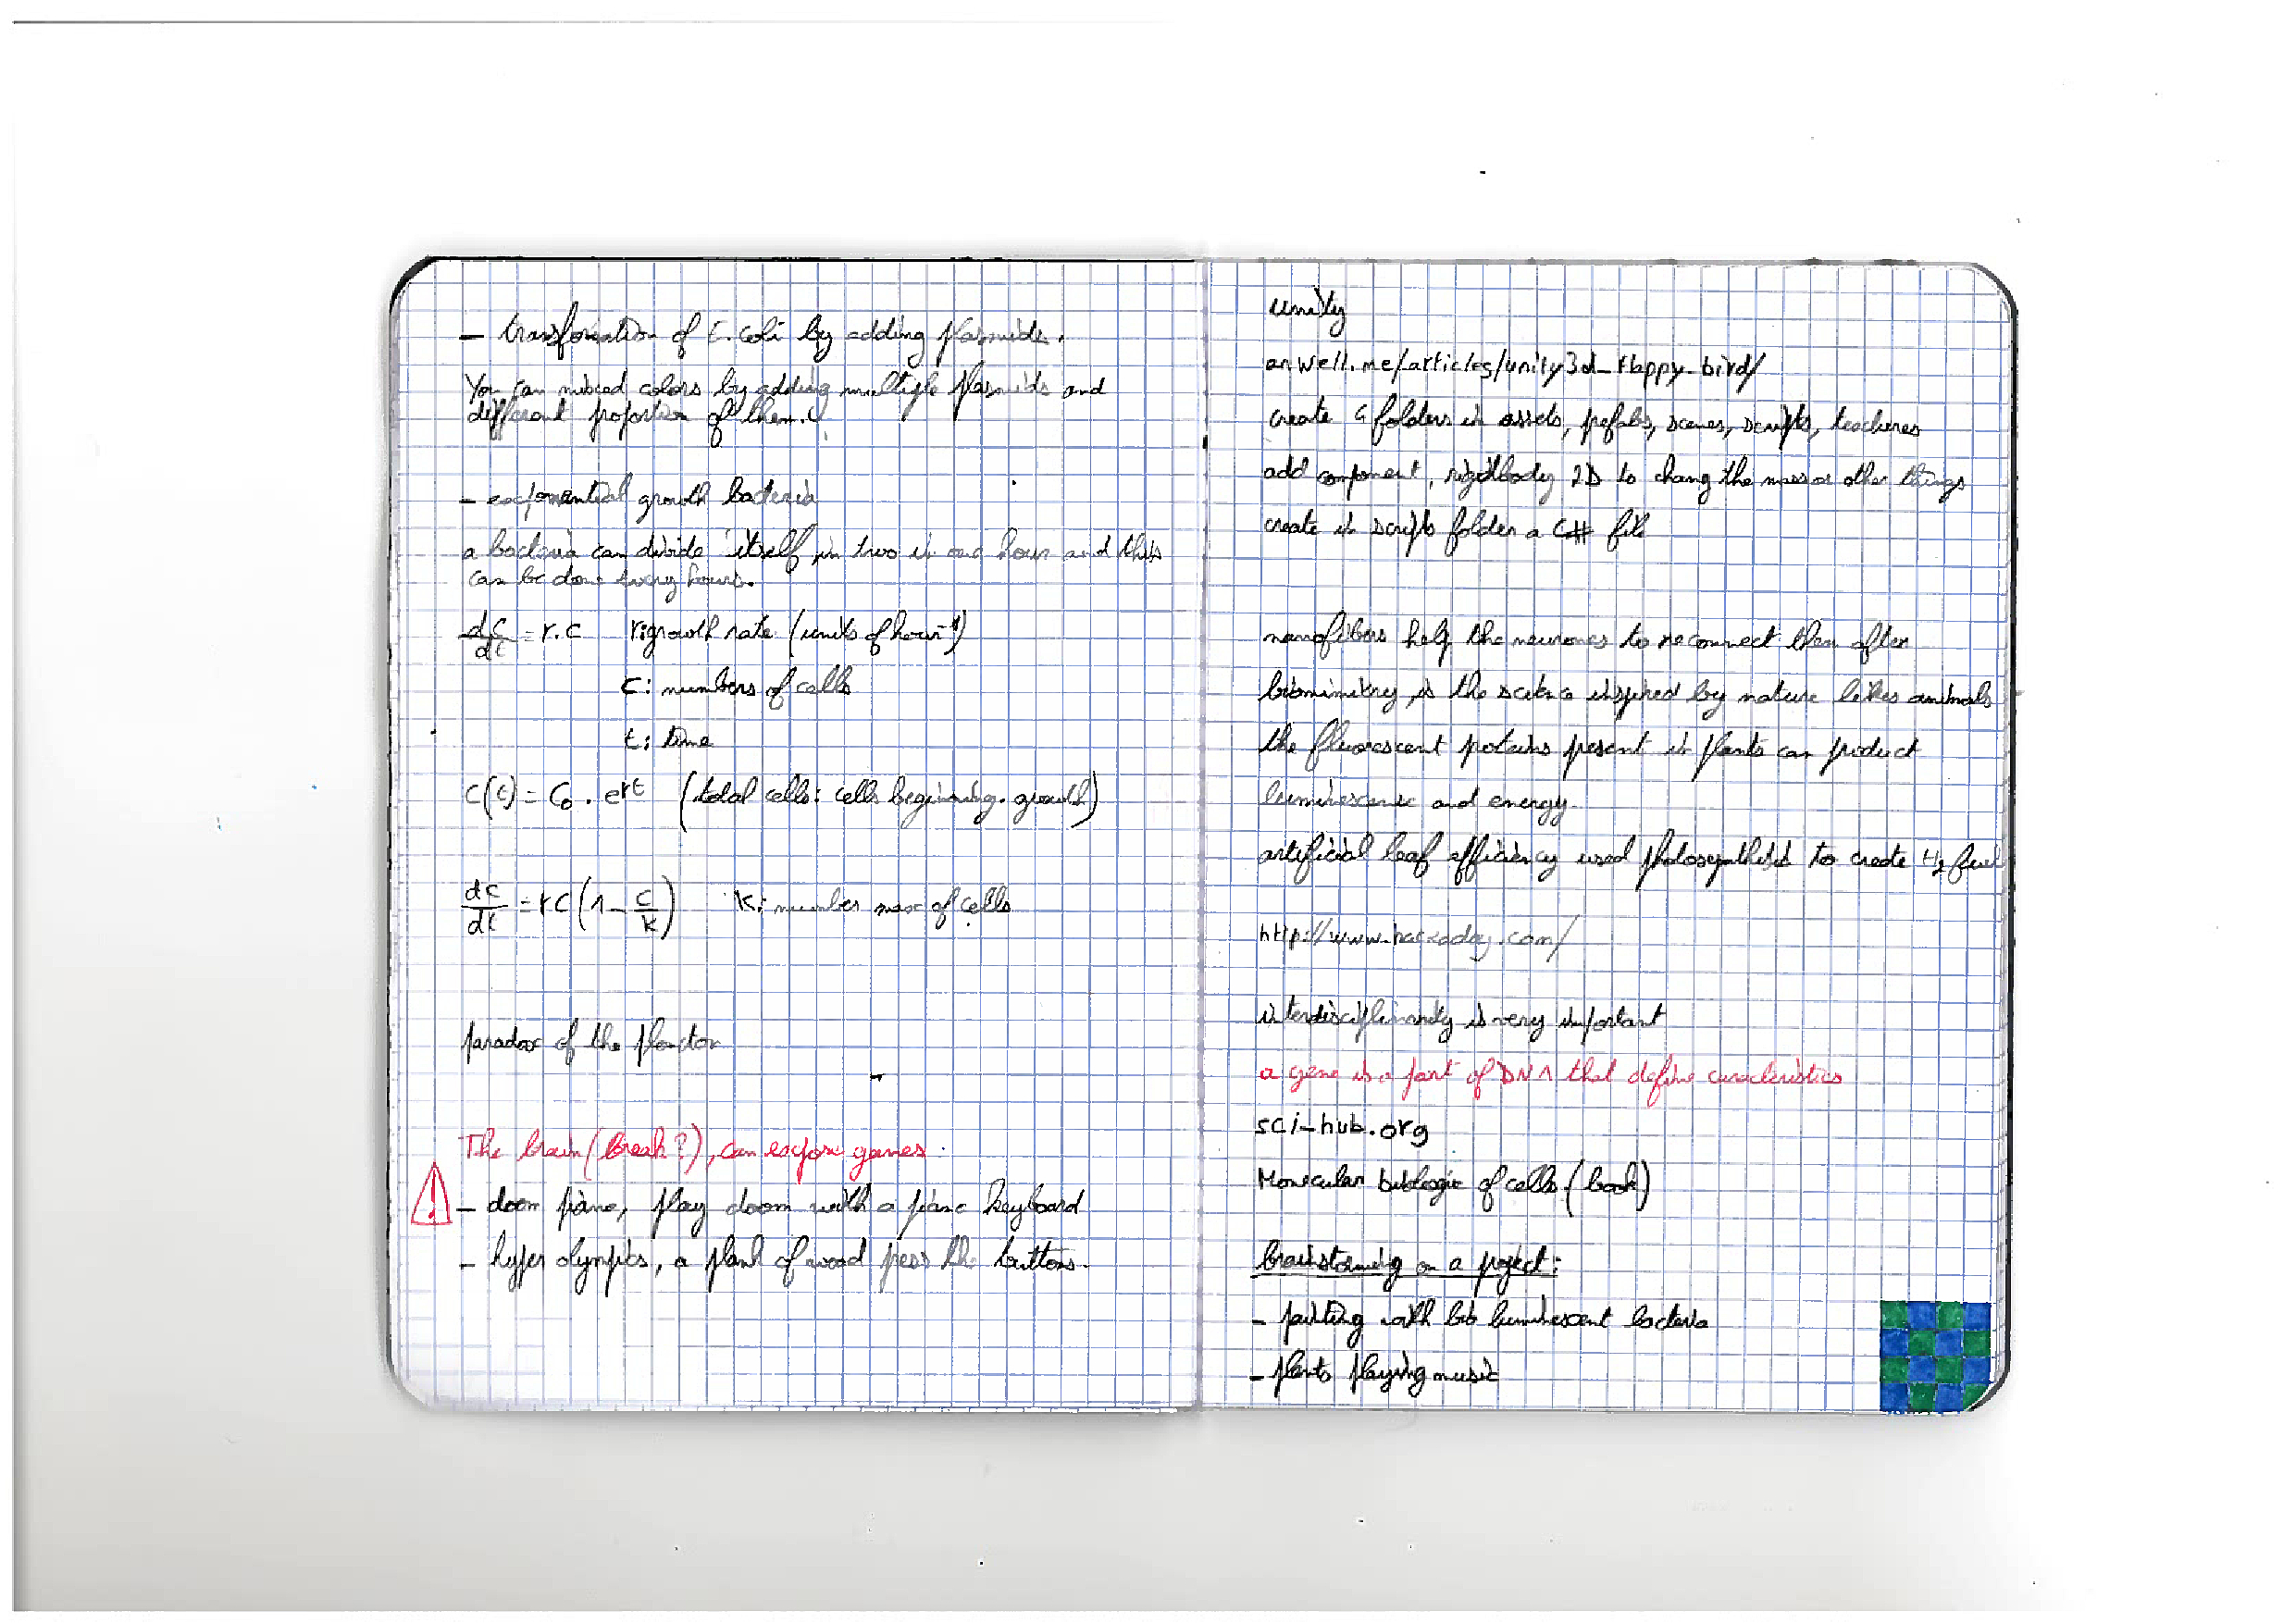 - transformation of E. coli by adding plasmids.
You can mixed colors by adding multiple plasmids and
different proportion of them.
- exponential growth bacteria
a bacteria can divide itself in two in one hour and this
can be done every hours.
dC/dt = r.C    r: growth rate (units of hour⁻¹)
C: numbers of cells
t: time
C(t) = C₀ . e^rt    (total cells: cells beginning. growth)
dC/dt = rC(1 - C/K)    K: number max of cells
paradox of the plancton
The brain (break?), can expose games
- doom piano, play doom with a piano keyboard
- hyper olympics, a plank of wood press the buttons.
unity
anwell.me/articles/unity3d_flappy-bird/
create 4 folders in assets, prefabs, scenes, scripts,
add component, rigidbody 2D to chang the mass or other things
create in scripts folder a C# file
nanofibers help the neurones to reconnect them after
biomimitry is the science inspired by nature likes animals
the fluorescent proteins present in plants can product
luminescence and energy.
artificial leaf efficiency used photosynthesis to create H₂ fuel
http://www.hackaday.com/
interdisciplinarity is very important
a gene is a part of DNA that define caracteristics
sci-hub.org
Molecular biologie of cells (book)
brainstorming on a project:
- painting with bio luminescent bacteria
- plants playing music